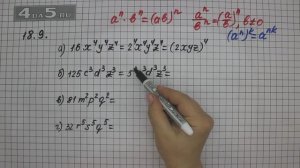 4DA5.RU
aⁿ · bⁿ = (ab)ⁿ
aⁿ/bⁿ = (a/b)ⁿ, b≠0
(aⁿ)ᵏ = aⁿᵏ
18.9.
а) 16x⁴y⁴z⁴ = 2⁴x⁴y⁴z⁴ = (2xyz)⁴
б) 125c³d³z³ = 5³c³d³z³ =
в) 81m²p²q² =
г) 32r⁵s⁵q⁵ =